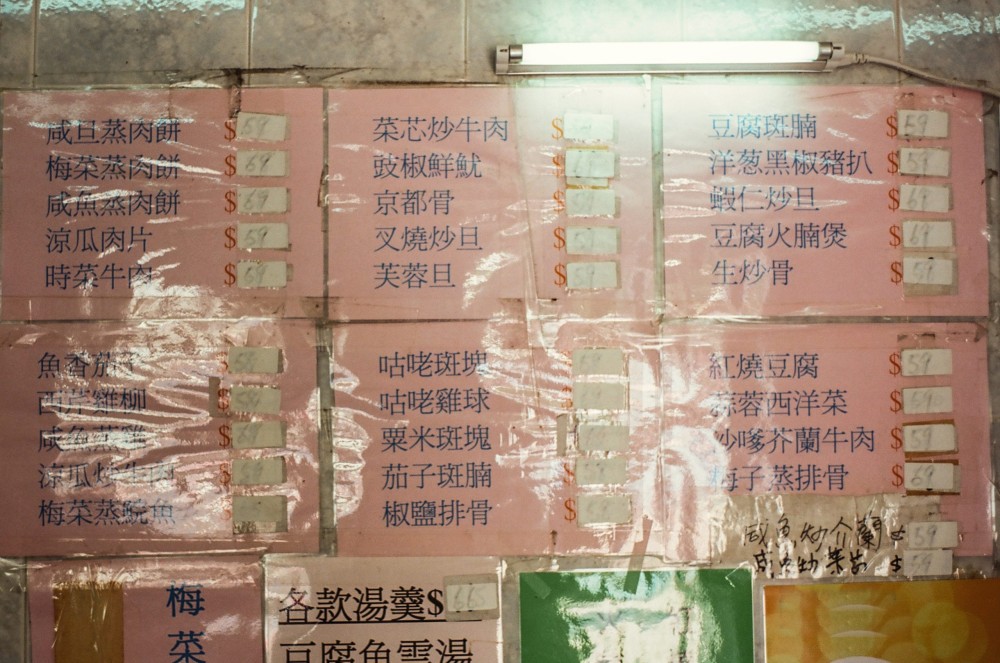 咸旦蒸肉餅 $59
梅菜蒸肉餅 $69
咸魚蒸肉餅 $69
涼瓜肉片 $59
時菜牛肉 $59
菜芯炒牛肉 $
豉椒鮮魷 $
京都骨 $59
叉燒炒旦 $59
芙蓉旦 $59
豆腐斑腩 $59
洋葱黑椒豬扒 $59
蝦仁炒旦 $
豆腐火腩煲 $
生炒骨 $59
魚香茄子
西芹雞柳 $
咸魚蒸雞 $
涼瓜炒牛肉 $
梅菜蒸鯇魚
咕咾斑塊
咕咾雞球
粟米斑塊
茄子斑腩 $
椒鹽排骨 $
紅燒豆腐 $59
蒜蓉西洋菜 $59
沙嗲芥蘭牛肉 $59
梅子蒸排骨 $69
咸魚炒介蘭 $59
梅
菜
各款湯羹$
豆腐魚雲湯